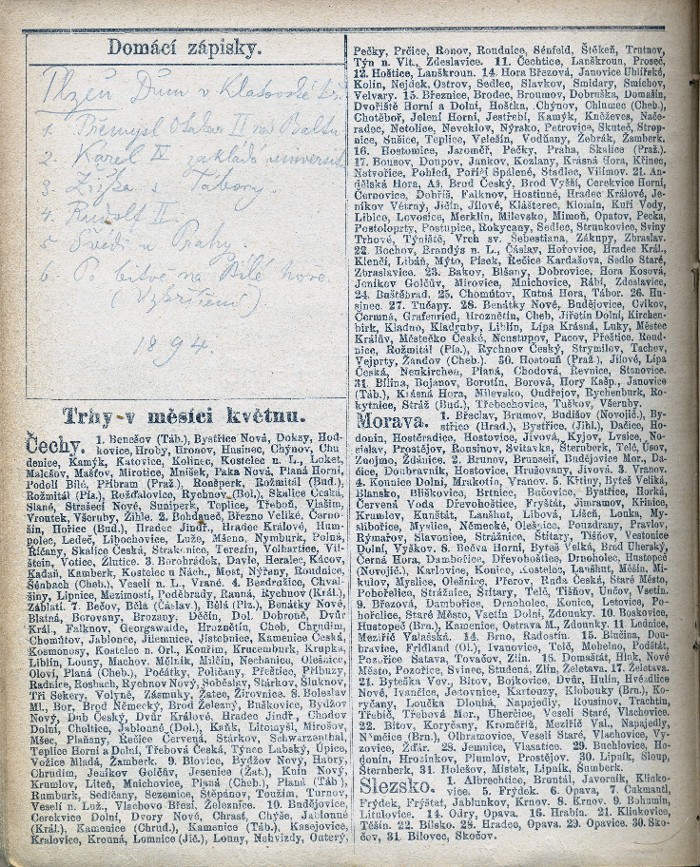 Domácí zápisky.
Plzeň Dům v Klatovské tř.
1. Přemysl Otakar II na Baltu
2. Karel IV zakládá universit
3. Žižka s Tábory.
4. Rudolf II
5 Švédi u Prahy.
6. Po bitvě na Bílé hoře.
(Vzkříšení)
1894.
Trhy v měsíci květnu.
Čechy. 1. Benešov (Táb.), Bystřice Nová, Doksy, Hod-
kovice, Hroby, Hronov, Husinec, Chýnov, Chu
denice, Kamýk, Katovice, Kolinec, Kostelec n. L., Loket,
Malešov, Mašťov, Mirotice, Mníšek, Paka Nová, Planá Horní,
Podolí Bílé, Příbram (Praž.), Ronšperk, Rožmitál (Bud.),
Rožmitál (Pís.), Rožďalovice, Rychnov (Bol.), Skalice Česká,
Slaně, Strašecí Nové, Suniperk, Teplice, Třeboň, Vlašim,
Vroutek, Všeruby, Žihle. 2. Bohdaneč, Březno Veliké, Černo-
šín, Hořice (Bud.), Hradec Jindř., Hradec Králové, Hum-
polec, Ledeč, Libochovice, Luže, Mšeno, Nymburk, Polná,
Říčany, Skalice Česká, Strakonice, Terezín, Volhartice, Vil-
štein, Votice, Žlutice. 3. Borohrádek, Davle, Heralec, Kácov,
Kadaň, Kamberk, Kostelec u Nách., Most, Nýřany, Roudnice,
Šénbach (Cheb.), Veselí n. L., Vrané. 4. Bezdružice, Chval-
šiny, Lipnice, Mezimostí, Poděbrady, Ranná, Rychnov (Král.),
Záblatí. 7. Bečov, Běla (Čáslav.), Bělá (Plz.), Benátky Nové,
Blatná, Borovany, Brozany, Děčín, Dol. Dobrouč, Dvůr
Král., Falknov, Georgswalde, Hroznětín, Cheb, Chrudim,
Chomútov, Jablonec, Jilemnice, Jistebnice, Kamenice Česká,
Kosmonosy, Kostelec n. Orl., Kouřim, Krucemburk, Krupka,
Liblín, Louny, Machov, Mělník, Milčín, Nechanice, Olešnice,
Oloví, Planá (Cheb.), Počátky, Poličany, Přeštice, Přibuzy,
Radnice, Rosbach, Rychnov Nový, Soběslav, Stárkov, Šluknov,
Tři Sekery, Volyně, Zásmuky, Žatec, Žirovnice. 8. Boleslav
Ml., Bor, Brod Německý, Brod Železný, Buškovice, Bydžov
Nový, Dub Český, Dvůr Králové, Hradec Jindř., Chodov
Dolní, Choltice, Jablonné (Dol.), Kašk, Litomyšl, Mirošov,
Mšec, Plaňany, Rečice Červená, Stárkov, Schwarzenthal,
Teplice Horní a Dolní, Třebová Česká, Týnec Labský, Úpice,
Vožice Mladá, Žamberk. 9. Blovice, Bydžov Nový, Habry,
Chrudim, Jeníkov Golčův, Jesenice (Žat.), Knín Nový,
Krumlov, Liteň, Mnichovice, Planá (Cheb.), Planá (Táb.),
Rumburk, Sedlčany, Sezemice, Štěpánov, Toužim, Turnov,
Veselí n. Luž., Vlachovo Březí, Železnice. 10. Budějovice,
Cerekvice Dolní, Dvory Nové, Chrast, Chýše, Jablonné
(Král.), Kamenice (Chrud.), Kamenice (Táb.), Kasejovice,
Kralovice, Krouná, Lomnice (Jič.), Louny, Nehvizdy, Outerý,
Pečky, Prčice, Ronov, Roudnice, Sénfeld, Štěkeň, Trutnov,
Týn n. Vlt., Zdeslavice. 11. Čechtice, Lanškroun, Proseč,
12. Hoštice, Lanškroun. 14. Hora Březová, Janovice Uhlířské,
Kolín, Nejdek, Ostrov, Sedlec, Slavkov, Smidary, Smíchov,
Velvary. 15. Březnice, Brodec, Broumov, Dobruška, Domašín,
Dvořiště Horní a Dolní, Hoštka, Chýnov, Chlumec (Cheb.),
Chotěboř, Jelení Horní, Jestřebí, Kamýk, Kněževes, Nače-
radec, Netolice, Neveklov, Nýrsko, Petrovice, Skuteč, Strop-
nice, Sušice, Teplice, Velešín, Vodňany, Žebrák, Žamberk.
16. Hostomice, Jaroměř, Pečky, Praha, Skalice (Praž.),
17. Bousov, Doupov, Jankov, Kozlany, Krásná Hora, Křinec,
Netvořice, Pohled, Poříčí Spálené, Stadlec, Vilímov. 21. An-
dělská Hora, Aš, Brod Český, Brod Vyšší, Cerekvice Horní,
Černovice, Dobříš, Falknov, Hostinné, Hradec Králové, Je-
níkov Větrný, Jičín, Jílové, Klášterec, Klomín, Kuří Vody,
Libice, Lovosice, Merklín, Milevsko, Mimoň, Opatov, Pecka,
Postoloprty, Postupice, Rokycany, Sedlec, Strunkovice, Sviny
Trhové, Týniště, Vrch sv. Šebestiana, Zákupy, Zbraslav.
22. Bochov, Brandýs n. L., Čáslav, Hořovice, Hradec Král.,
Klenčí, Libáň, Mýto, Písek, Řečice Kardašova, Sedlo Staré,
Zbraslavice. 23. Bakov, Blšany, Dobrovice, Hora Kosová,
Jeníkov Golčův, Mirovice, Mnichovice, Rábí, Zdeslavice,
24. Buštěbrad. 25. Chomútov, Kutná Hora, Tábor. 26. Hu-
sinec. 27. Tučapy. 28. Benátky Nové, Budějovice, Cvikov,
Čermná, Grafenried, Hroznětín, Cheb, Jiřetín Dolní, Kirchen-
birk, Kladno, Kladruby, Liblín, Lípa Krásná, Luky, Městec
Králův, Městečko České, Neustupov, Pacov, Přeštice, Roud-
nice, Rožmitál (Pís.), Rychnov Český, Strymilov, Tachov,
Vejprty, Žandov (Cheb.). 30. Hostouň (Praž.), Jílové, Lípa
Česká, Neukirchen, Planá, Chodová, Řevnice, Stanovice.
31. Bílina, Bojanov, Borotín, Borová, Hory Kašp., Janovice
(Táb.), Krásná Hora, Milevsko, Ondřejov, Rychenburk, Ro-
kytnice, Stráž (Bud.), Třebechovice, Tuškov, Všeruby.
Morava. 1. Břeclav, Brumov, Budišov (Novojič.), By-
střice (Hrad.), Bystřice (Jihl.), Dačice, Ho-
donín, Hostěradice, Hostovice, Jívová, Kyjov, Lvslce, No-
slav, Prostějov, Rousinov, Svitavka, Šternberk, Telč, Úsov,
Znojmo, Ždánice. 2. Brumov, Brunseif, Budějovice Mor., Da-
čice, Doubravník, Hostovice, Hrušovany, Jívová. 3. Vranov.
4. Kounice Dolní, Mrakotín, Vranov. 5. Křtiny, Byteš Veliká,
Blansko, Blíškovice, Brtnice, Bučovice, Bystřice, Horka,
Červená Voda, Dřevohoštice, Fryšták, Jimramov, Křinice,
Krumlov, Kunštát, Lanžhut, Libová, Líšeň, Louka, My-
slibořice, Myslice, Německé, Olešnice, Pouzdrany, Pravlov,
Rýmařov, Slavonice, Strážnice, Štítary, Tišňov, Vestonice
Dolní, Vyškov. 8. Bečva Horní, Byteš Velká, Brod Uherský,
Černá Hora, Dambořice, Dřevohoštice, Drnoholec, Hustopeč
(Novojič.), Karlovice, Konice, Kostelec, Lavšhnt, Měšín, Mi-
kulov, Myslice, Olešnice, Přerov, Ruda Česká, Staré Město,
Pohořelice, Strážnice, Štítary, Telč, Tišňov, Unčov, Vsetín.
9. Březová, Dambořice, Drnoholec, Konice, Letovice, Po-
hořelice, Staré Město, Vsetín Dolní, Zdounky. 10. Boskovice,
Hustopeč (Brn.), Kamenice, Ostrava M., Zdounky. 11 Lednice,
Meziříč Valašská. 14. Brno, Radostín. 15. Blučina, Dou-
bravice, Fridland (Ol.), Ivanovice, Telč, Mohelno, Podštát,
Pozořice Šatava, Tovačov, Zlín. 16. Domaštát, Hluk, Nové
Město, Pozořice, Svinec, Studená, Zlín, Želetava. 17. Želetava.
21. Byteška Vev. Bitov, Bojkovice, Dvůr, Hulín, Hvězdlice
Nové, Ivančice, Jedovnice, Kartouzy, Klobouky (Brn.), Ko-
ryčany, Loučka Dlouhá, Napajedly, Rousinov, Trachtín,
Třebíč, Třebová Mor., Uherčice, Veselí Staré, Vlachovice,
22. Bitov, Koryčany, Kroměříž, Meziříč Val., Napajedly,
Němčice (Brn.), Olbramovice, Veselí Staré, Vlachovice, Vy-
zovice, Žďár. 28. Jemnice, Vlasatice. 29. Buchlovice, Ho-
donín, Hrozínkov, Plumlov, Prostějov. 30. Lipník, Šloup,
Šternberk, 31. Holešov, Místek, Lipník, Šumberk.
Slezsko. 1. Albrechtice, Bruntál, Javorník, Klimko-
vice. 5. Frýdek. 6. Opava, 7. Cukmantl,
Frýdek, Frýštat, Jablunkov, Krnov. 8. Krnov. 9. Bohumín,
Litulovice. 14. Odry, Opava. 16. Hrabin. 21. Klimkovice,
Těšín. 22. Bílsko. 28. Hradec, Opava. 29. Opavice. 30. Sko-
čov, 31. Bílovec, Skočov.